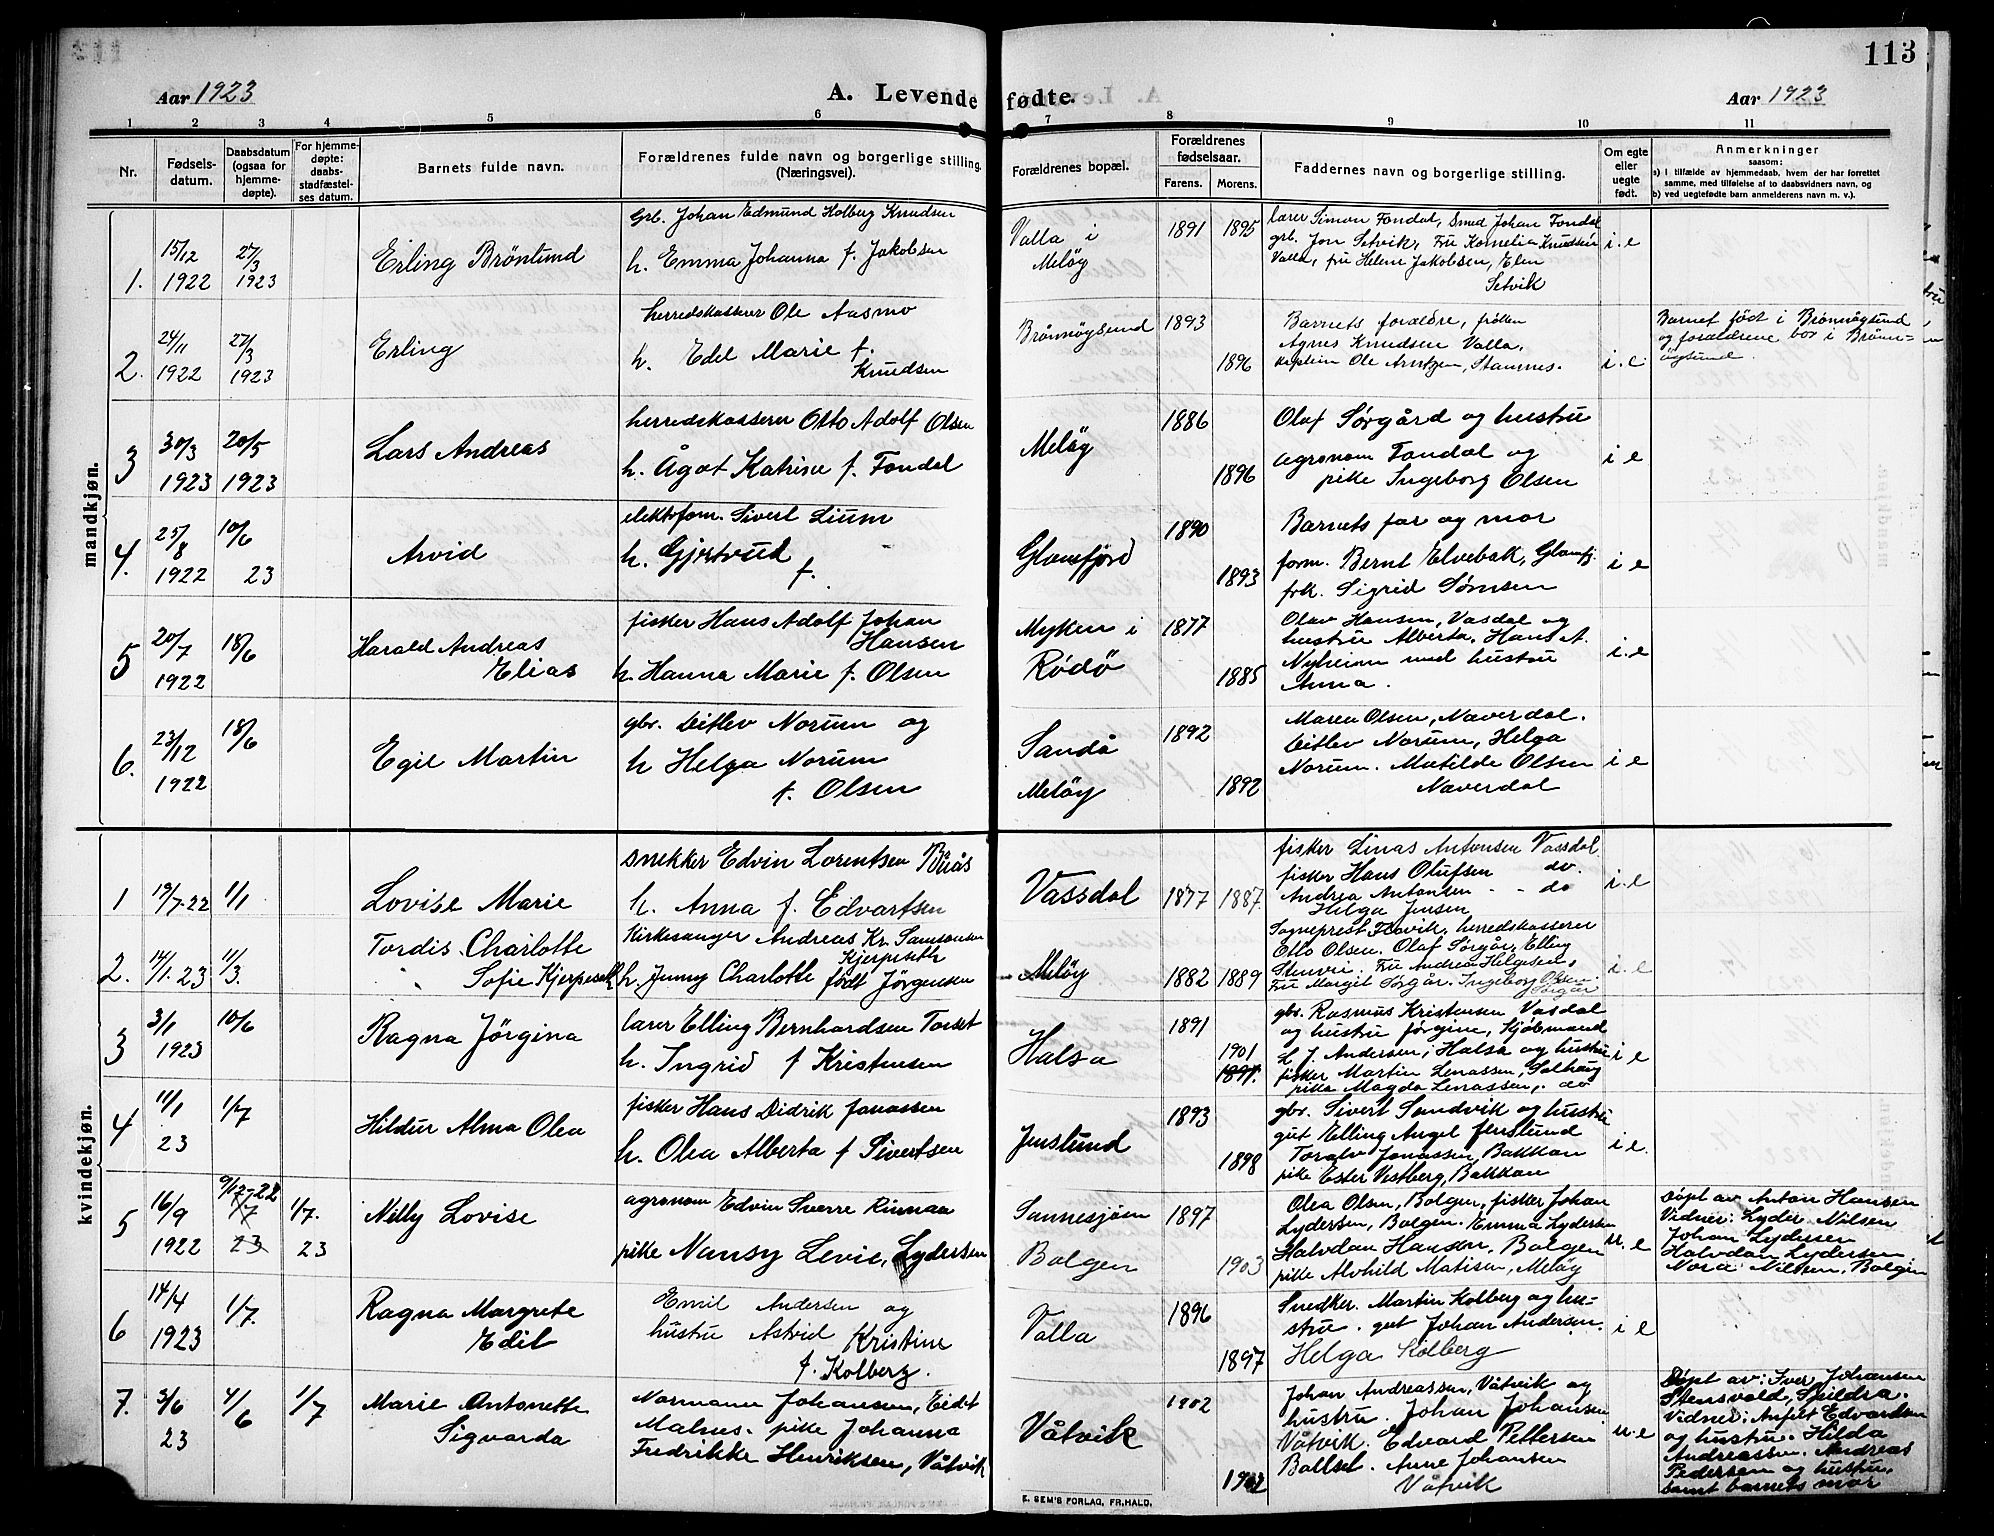 113
Aar 1923
A. Levende fødte.
Aar 1923
1 2 3 4 5 6 7 8 9 10 11
Nr.
Fødsels-
datum.
Daabsdatum
(ogsaa for
hjemme-
døpte).
For hjemme-
døpte:
daabs-
stadfæstel-
ses datum.
Barnets fulde navn.
Forældrenes fulde navn og borgerlige stilling.
(Næringsvei).
Forældrenes bopæl.
Forældrenes
fødselsaar.
Farens. Morens.
Faddernes navn og borgerlige stilling.
Om egte
eller
uegte
født.
Anmerkninger
saasom:
a) I tilfælde av hjemmedaab, hvem der har forrettet
samme, med tilføielse af to daabsvidners navn, og
b) ved uegtefødte barn anmelderens navn m. v.).
mandkjøn.
1.
15/12
1922
27/3
1923
Erling Brönlund
Grb. Johan Edmund Holberg Knudsen
h. Emma Johanna f. Jakobsen
Valla i
Meløy
1891 1895
lærer Simon Fondal, Smed Johan Fondal
grb. Jon Setvik, Fru Kornelia Knudsen
Valla, fru Helene Jakobsen, Elen
Setvik
i. e
2.
24/11
1922
27/3
1923
Erling
herredskasserer Ole Aasmo
h. Edel Marie f.
Knudsen
Brönnöysund
1893
1896
Barnets forældre, frøken
Agnes Knudsen Valla,
kaptein Ole Arntzen, Stamnes.
i. e
Barnet født i Brønnøysund
og forældrene bor i Brønn-
øysund.
3
30/3
1923
20/5
1923
Lars Andreas
herredskasserer Otto Adolf Olsen
h. Ågot Katrine f. Fondal
Meløy
1886
1896
Olaf Sørgård og hustru
agronom Fondal og
pike Ingeborg Olsen
i e
4.
25/8
1922
10/6
23
Arvid
elektrofom. Sivert Lium
h. Gjertrud
f.
Glomfjord
1890
1893
Barnets far og mor
form. Bernt Elvebak, Glomfj.
frk. Sigrid Sørnsen
i e
5
20/7
1922
18/6
Harald Andreas
Elias
fisker Hans Adolf Johan
Hansen
h. Hanna Marie f. Olsen
Myken i
Rødø
1877
1885
Olav Hansen, Vasdal og
hustru Alberta. Hans A.
Nyheim med hustru
Anna.
i. e
6.
23/12
1922
18/6
Egil Martin
gbr. Ditlev Norum og
h Helga Norum
f. Olsen
Sandå
Meløy
1892
1892
Maren Olsen, Næverdal.
Ditlev Norum, Helga
Norum. Matilde Olsen
Næverdal
i e
kvindekjøn.
1
19/7-22
1/1
Lovise Marie
snekker Edvin Lorentsen Buås
h. Anna f. Edvartsen
Vassdal
1877 1887
fisker Linas Antonsen Vassdal
fisker Hans Olufsen do.
Andrea Antonsen - - do
Helga Jensen
i. e
2.
14/1. 23
11/3.
Tordis Charlotte
Sofie Kjerpeseth
Kirkesanger Andreas Kr. Samsonsen
Kjerpeseth
h. Jenny Charlotte født Jörgensen
Meløy
1882 1889
Sogneprest Flovik, herredskasserer
Otto Olsen. Olaf Sørgår, Elling
Stenvei. Fru Andrea Helgesen,
Fru Margit Sørgår. Ingeborg Olsen
Sørgår
i. e
3
3/1
1923
10/6
Ragna Jörgina
lærer Elling Bernhardsen Torset
h. Ingrid f Kristensen
Halsa
1891
1901
1897.
gbr. Rasmus Kristensen Vasdal
og hustru Jørgine, Kjøbmand
L. J. Andersen, Halsa og hustru
fisker Martin Lenassen, Solhaug
pike Magda Lenassen, do
i e
4
11/1
23
1/7
Hildur Alma Olea
fisker Hans Didrik Jonassen
h. Olea Alberta f Sivertsen
Jenslund
1893
1898
gbr. Sivert Sandvik og hustru
gut Elling Angel Jenslund
Toralv Jonassen, Bakkan
pike Ester Vestberg, Bakkan
i. e.
5
16/9
1922
9/12-22
1/7
23
1/7.
23
Nelly Lovise
agronom Edvin Sverre Rinnaa
pike Nansy Levie, Lydersen
Sannesjøen
Bolgen
1897
1903
Olea Olsen, Bolgen, fisker Johan
Lydersen, Bolgen. Emma Lydersen
Halvdan Hansen, Bolgen
pike Alvhild Matisen, Meløy
u. e
Døpt av Anton Hansen
Vidner: Lyder Nilsen
Johan Lydersen
Halvdan Lydersen.
Nora Nilsen, Bolgen
6
14/4
1923
1/7.
Ragna Margrete
Edil
Emil Andersen og
hustru Astrid Kristine
f. Kolberg.
Valla
1896
1897
Snedker. Martin Kolberg og hu-
stru. gut Johan Andersen.
Helga Kolberg
i e
7.
3/6
23
4/6
1/7
Marie Antonette
Sigvarda
Normann Johansen, Eidet
Malnes. pike Johanna
Fredrikke Henriksen, Våtvik
Våtvik
1902
1902
Johan Andreassen, Våtvik og
hustru. Johan Johansen
Våtvik. Edvard Pettersen
Ballsel. Anne Johansen
Våtvik
u. e
Døpt av: Iver Johansen
Stensvold, Snildra.
Vidner: Anfelt Edvardsen
og hustru. Hilda
Andreassen. Andreas
Pedersen og hustru,
samt barnets mor
E. SEM'S FORLAG, FR.HALD.